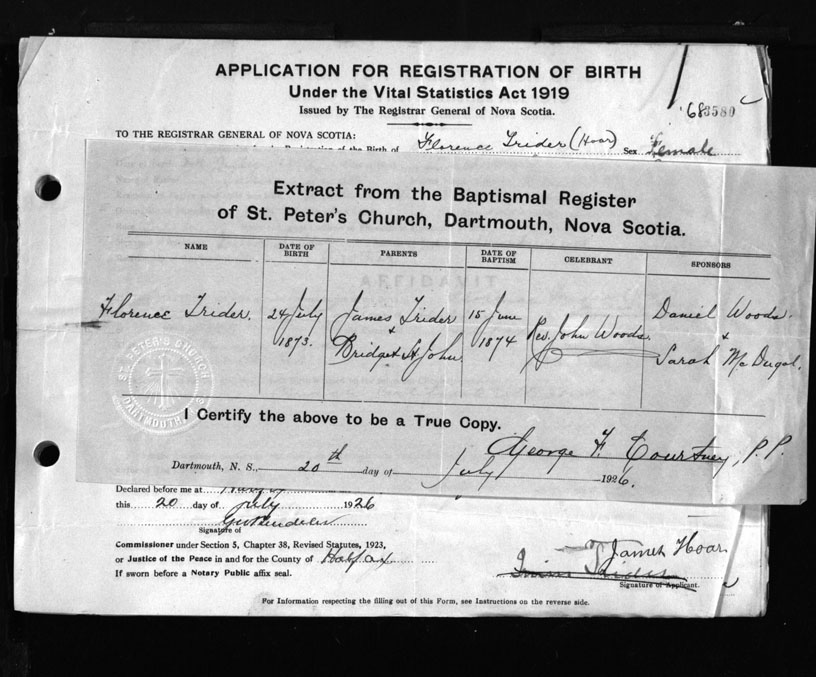 APPLICATION FOR REGISTRATION OF BIRTH
Under the Vital Statistics Act 1919
Issued by The Registrar General of Nova Scotia.
683580
TO THE REGISTRAR GENERAL OF NOVA SCOTIA:
of the Birth of Florence Trider (Hoar) Sex Female
Extract from the Baptismal Register
of St. Peter's Church, Dartmouth, Nova Scotia.
NAME DATE OF BIRTH PARENTS DATE OF BAPTISM CELEBRANT SPONSORS
Florence Trider. 24 July 1873. James Trider & Bridget St. John 15 June 1874 Rev. John Woods. Daniel Woods. & Sarah McDugal.
ST. PETER'S CHURCH
DARTMOUTH
I Certify the above to be a True Copy.
George F. Courtney, P.P.
Dartmouth, N. S., 20th day of July 1926.
Declared before me at
this 20 day of July 1926
Signature of
Commissioner under Section 5, Chapter 38, Revised Statutes, 1923,
or Justice of the Peace in and for the County of Halifax
If sworn before a Notary Public affix seal.
James Hoar
Trider
Signature of Applicant.
For Information respecting the filling out of this Form, see Instructions on the reverse side.